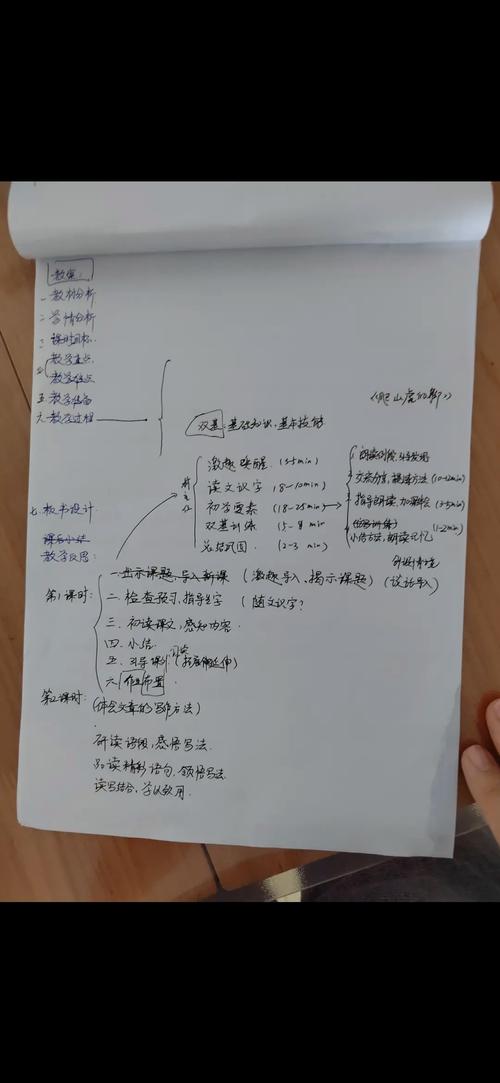 教案:
一 教材分析
二 学情分析
三 课时目标
四 教学重点
教学难点
五 教学准备
六 教学过程
《爬山虎的脚》
双基:基础知识,基本技能
激趣唤醒 (3-5min)
读文识字 (8-10min)
初学要素 (18-25min)
双基训练 (5-8min
总结巩固 (2-3min)
朗读
交流分享,提炼方法 (10-12min)
指导朗读,加深 (3-5min)
小结方法,朗读记忆 (1-2min)
七 板书设计
课后小结
教学反思:
创设情境
(谈话导入)
第1课时:
一 出示课题,导入新课 (激趣导入、揭示课题)
二. 检查预习,指导生字 (随文识字?
三. 初读课文,感知内容.
四. 小结
五. 引导 (拓展延伸)
六 作业布置
第2课时:(体会文章的写作方法)
研读语段,感悟写法.
品读精彩语句,领悟写法.
读写结合,学以致用.